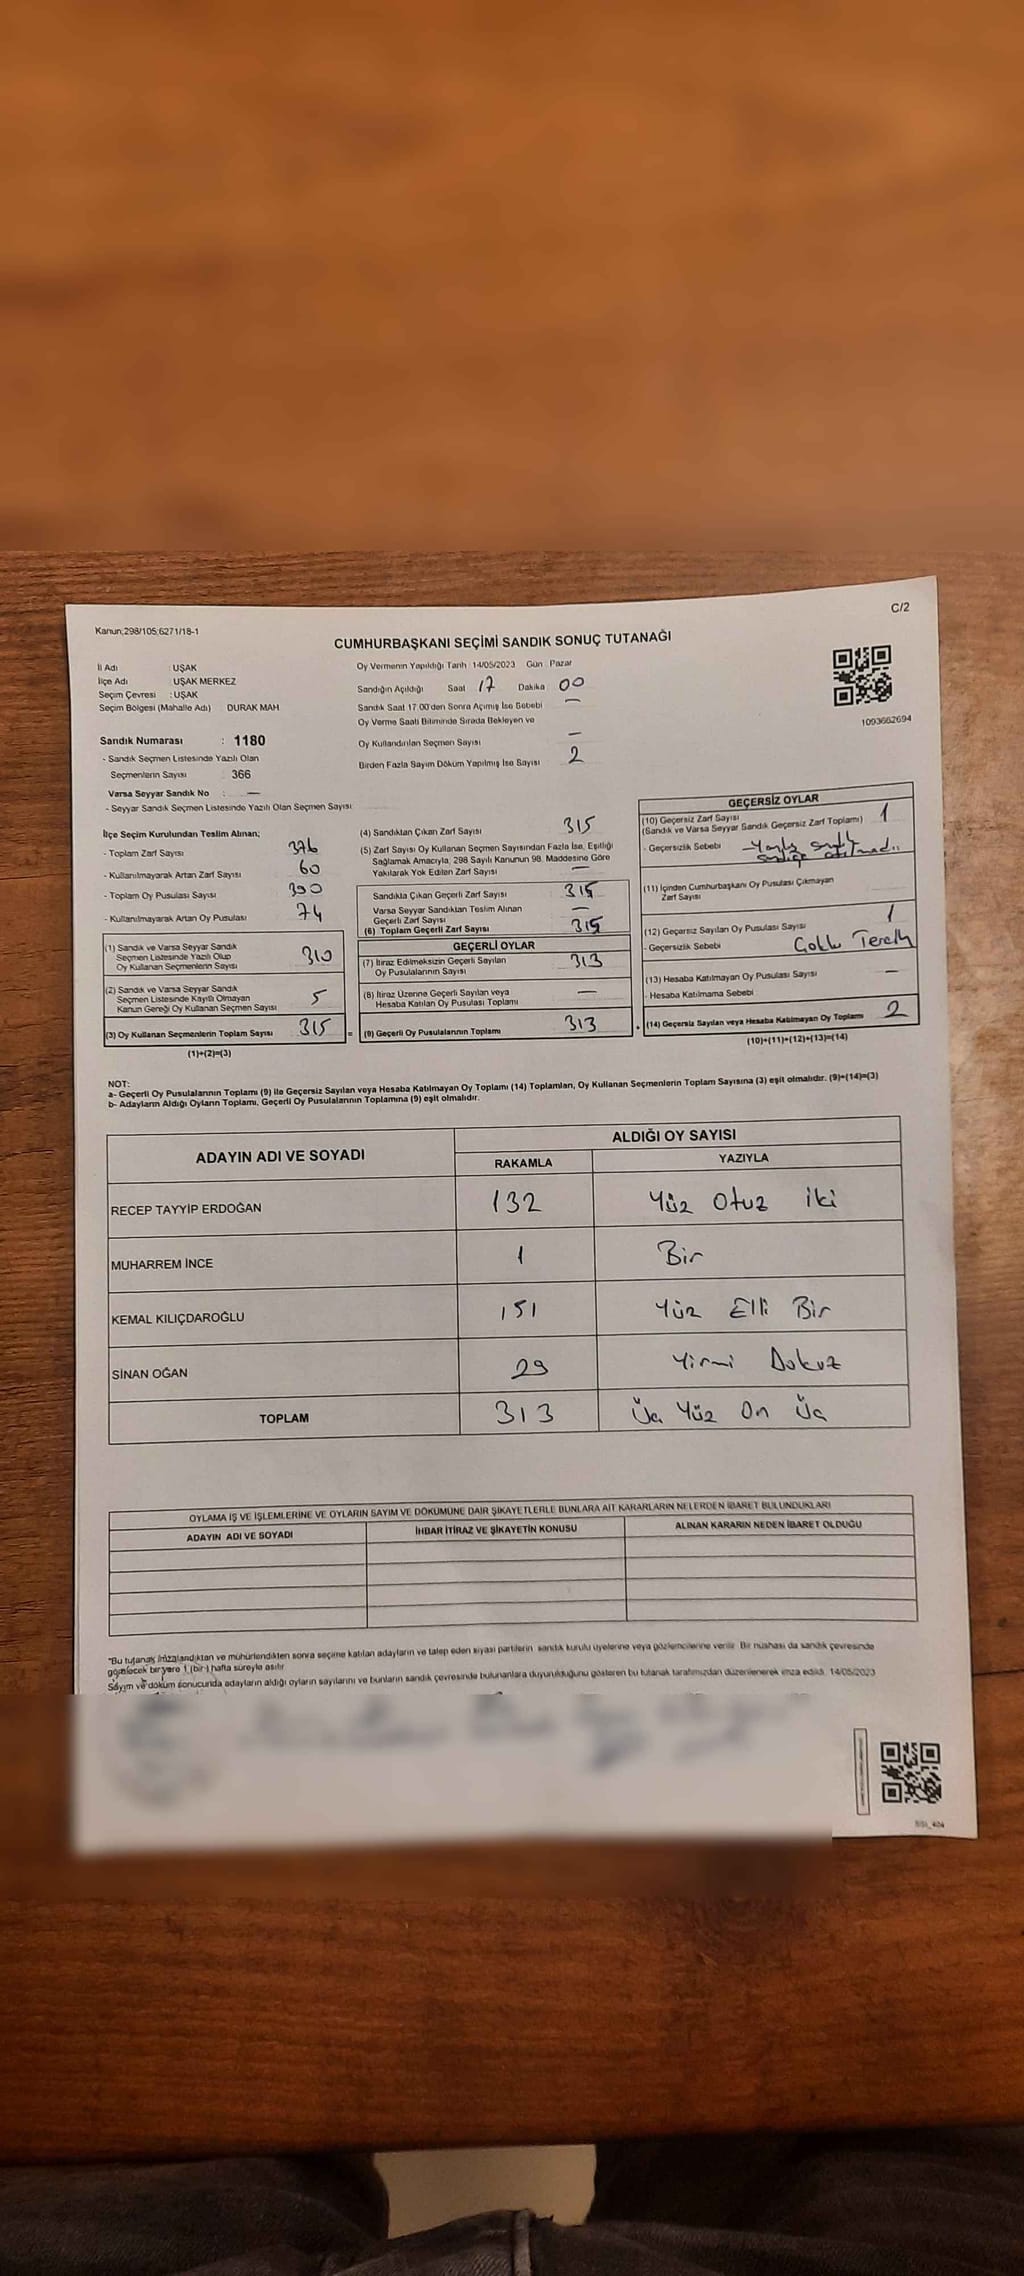 C/2
Kanun;298/105;6271/18-1
CUMHURBAŞKANI SEÇİMİ SANDIK SONUÇ TUTANAĞI
İl Adı : UŞAK
İlçe Adı : UŞAK MERKEZ
Seçim Çevresi : UŞAK
Seçim Bölgesi (Mahalle Adı) DURAK MAH
Sandık Numarası : 1180
- Sandık Seçmen Listesinde Yazılı Olan
Seçmenlerin Sayısı 366
Varsa Seyyar Sandık No : —
- Seyyar Sandık Seçmen Listesinde Yazılı Olan Seçmen Sayısı
Oy Vermenin Yapıldığı Tarih : 14/05/2023 Gün : Pazar
Sandığın Açıldığı Saat 17 Dakika 00
Sandık Saat 17.00'den Sonra Açılmış İse Sebebi —
Oy Verme Saati Bitiminde Sırada Bekleyen ve
Oy Kullandırılan Seçmen Sayısı —
Birden Fazla Sayım Döküm Yapılmış İse Sayısı 2
1093662694
İlçe Seçim Kurulundan Teslim Alınan;
- Toplam Zarf Sayısı 376
- Kullanılmayarak Artan Zarf Sayısı 60
- Toplam Oy Pusulası Sayısı 390
- Kullanılmayarak Artan Oy Pusulası 74
(1) Sandık ve Varsa Seyyar Sandık
Seçmen Listesinde Yazılı Olup
Oy Kullanan Seçmenlerin Sayısı 310
(2) Sandık ve Varsa Seyyar Sandık
Seçmen Listesinde Kayıtlı Olmayan
Kanun Gereği Oy Kullanan Seçmen Sayısı 5
(3) Oy Kullanan Seçmenlerin Toplam Sayısı 315 =
(1)+(2)=(3)
(4) Sandıktan Çıkan Zarf Sayısı 315
(5) Zarf Sayısı Oy Kullanan Seçmen Sayısından Fazla İse, Eşitliği
Sağlamak Amacıyla, 298 Sayılı Kanunun 98. Maddesine Göre
Yakılarak Yok Edilen Zarf Sayısı —
Sandıkta Çıkan Geçerli Zarf Sayısı 315
Varsa Seyyar Sandıktan Teslim Alınan
Geçerli Zarf Sayısı —
(6) Toplam Geçerli Zarf Sayısı 315
GEÇERLİ OYLAR
(7) İtiraz Edilmeksizin Geçerli Sayılan
Oy Pusulalarının Sayısı 313
(8) İtiraz Üzerine Geçerli Sayılan veya
Hesaba Katılan Oy Pusulası Toplamı —
(9) Geçerli Oy Pusulalarının Toplamı 313 +
GEÇERSİZ OYLAR
(10) Geçersiz Zarf Sayısı
(Sandık ve Varsa Seyyar Sandık Geçersiz Zarf Toplamı) 1
- Geçersizlik Sebebi Yanlış
(11) İçinden Cumhurbaşkanı Oy Pusulası Çıkmayan
Zarf Sayısı
(12) Geçersiz Sayılan Oy Pusulası Sayısı 1
- Geçersizlik Sebebi
(13) Hesaba Katılmayan Oy Pusulası Sayısı —
- Hesaba Katılmama Sebebi
(14) Geçersiz Sayılan veya Hesaba Katılmayan Oy Toplamı 2
(10)+(11)+(12)+(13)=(14)
NOT:
a- Geçerli Oy Pusulalarının Toplamı (9) ile Geçersiz Sayılan veya Hesaba Katılmayan Oy Toplamı (14) Toplamları, Oy Kullanan Seçmenlerin Toplam Sayısına (3) eşit olmalıdır. (9)+(14)=(3)
b- Adayların Aldığı Oyların Toplamı, Geçerli Oy Pusulalarının Toplamına (9) eşit olmalıdır.
ADAYIN ADI VE SOYADI
ALDIĞI OY SAYISI
RAKAMLA YAZIYLA
RECEP TAYYİP ERDOĞAN 132 Yüz Otuz iki
MUHARREM İNCE 1 Bir
KEMAL KILIÇDAROĞLU 151 Yüz Elli Bir
SİNAN OĞAN 29 Yirmi Dokuz
TOPLAM 313 Üç Yüz On Üç
OYLAMA İŞ VE İŞLEMLERİNE VE OYLARIN SAYIM VE DÖKÜMÜNE DAİR ŞİKAYETLERLE BUNLARA AİT KARARLARIN NELERDEN İBARET BULUNDUKLARI
ADAYIN ADI VE SOYADI İHBAR İTİRAZ VE ŞİKAYETİN KONUSU ALINAN KARARIN NEDEN İBARET OLDUĞU
"Bu tutanak imzalandıktan ve mühürlendikten sonra seçime katılan adayların ve talep eden siyasi partilerin sandık kurulu üyelerine veya gözlemcilerine verilir. Bir nüshası da sandık çevresinde
görülecek bir yere 1 (bir) hafta süreyle asılır.
Sayım ve döküm sonucunda adayların aldığı oyların sayılarını ve bunların sandık çevresinde bulunanlara duyurulduğunu gösteren bu tutanak tarafımızdan düzenlenerek imza edildi. 14/05/2023